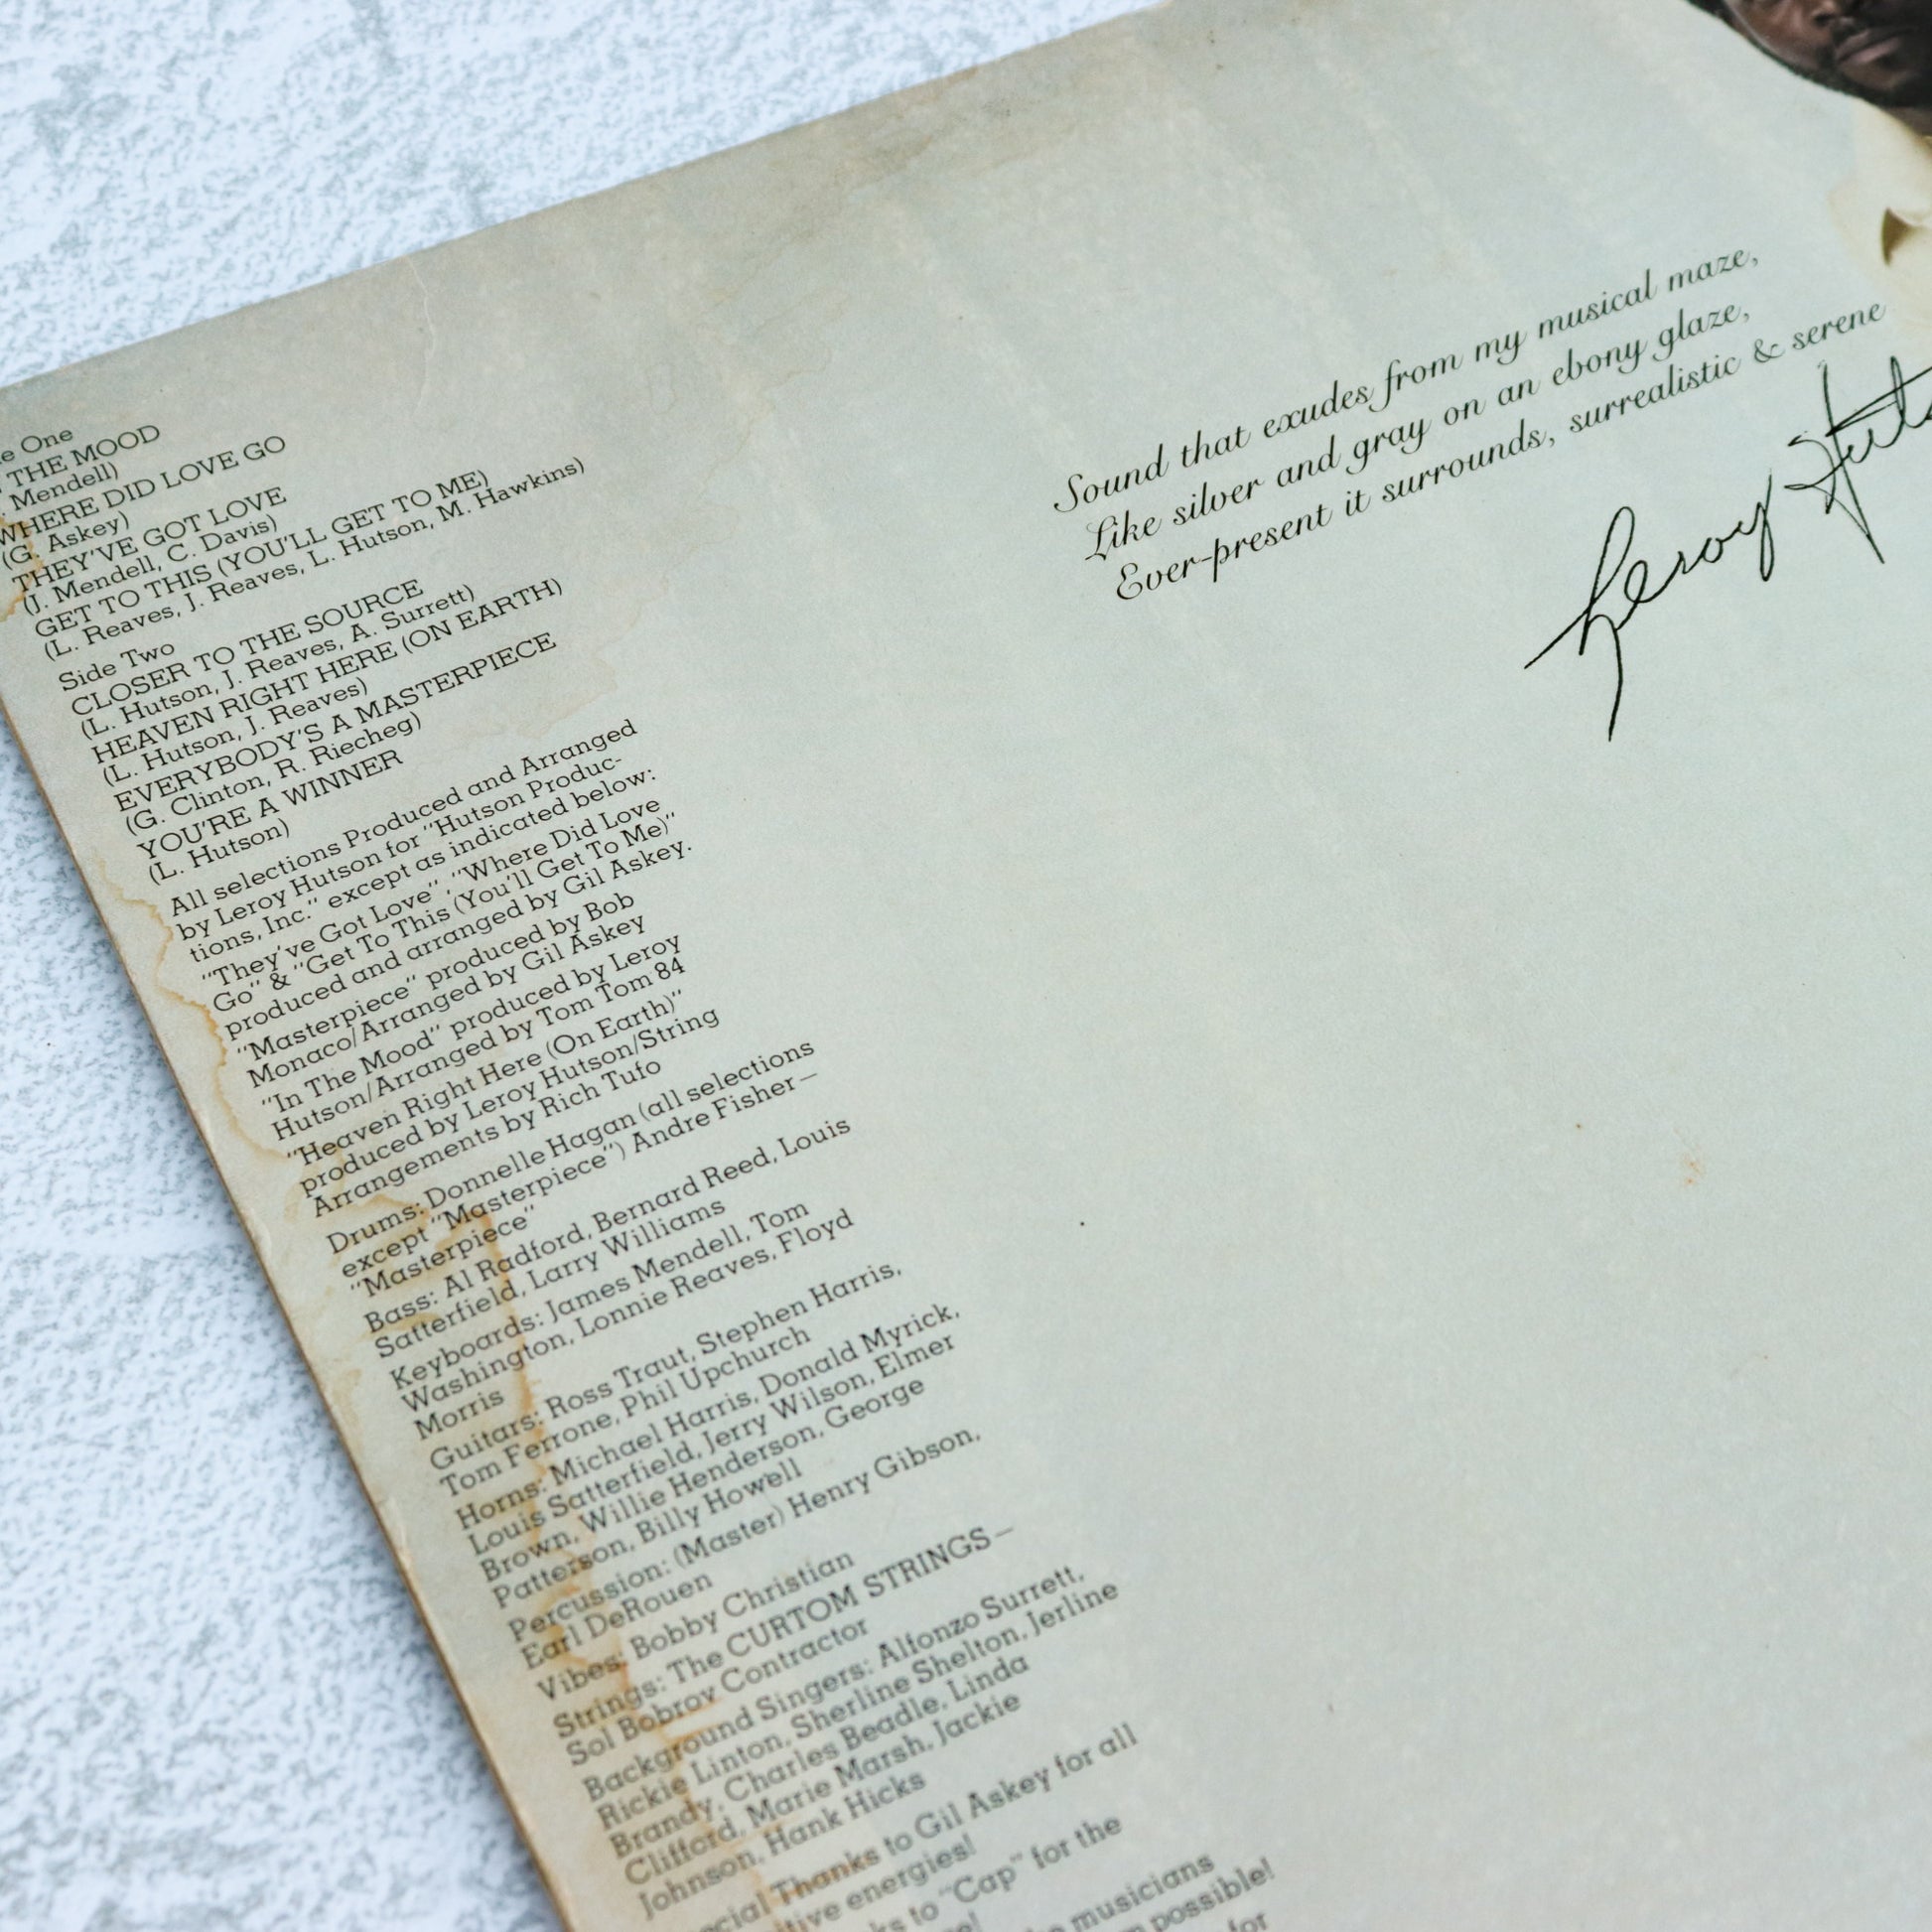 One
THE MOOD
Mendell)
WHERE DID LOVE GO
(G. Askey)
THEY'VE GOT LOVE
(J. Mendell, C. Davis)
GET TO THIS (YOU'LL GET TO ME)
(L. Reaves, J. Reaves, L. Hutson, M. Hawkins)
Side Two
CLOSER TO THE SOURCE
(L. Hutson, J. Reaves, A. Surrett)
HEAVEN RIGHT HERE (ON EARTH)
(L. Hutson, J. Reaves)
EVERYBODY'S A MASTERPIECE
(G. Clinton, R. Riecheg)
YOU'RE A WINNER
(L. Hutson)
All selections Produced and Arranged
by Leroy Hutson for "Hutson Produc-
tions, Inc." except as indicated below:
"They've Got Love", "Where Did Love
Go" & "Get To This (You'll Get To Me)"
produced and arranged by Gil Askey.
"Masterpiece" produced by Bob
Monaco/Arranged by Gil Askey
"In The Mood" produced by Leroy
Hutson/Arranged by Tom Tom 84
"Heaven Right Here (On Earth)"
produced by Leroy Hutson/String
Arrangements by Rich Tufo
Drums: Donnelle Hagan (all selections
except "Masterpiece") Andre Fisher—
"Masterpiece"
Bass: Al Radford, Bernard Reed, Louis
Satterfield, Larry Williams
Keyboards: James Mendell, Tom
Washington, Lonnie Reaves, Floyd
Morris
Guitars: Ross Traut, Stephen Harris,
Tom Ferrone, Phil Upchurch
Horns: Michael Harris, Donald Myrick,
Louis Satterfield, Jerry Wilson, Elmer
Brown, Willie Henderson, George
Patterson, Billy Howell
Percussion: (Master) Henry Gibson,
Earl DeRouen
Vibes: Bobby Christian
Strings: The CURTOM STRINGS—
Sol Bobrov Contractor
Background Singers: Alfonzo Surrett,
Rickie Linton, Sherline Shelton, Jerline
Brandy, Charles Beadle, Linda
Clifford, Marie Marsh, Jackie
Johnson, Hank Hicks
Thanks to Gil Askey for all
energies!
to "Cap" for the
musicians
possible!
for
Sound that exudes from my musical maze,
Like silver and gray on an ebony glaze,
Ever-present it surrounds, surrealistic & serene
Leroy